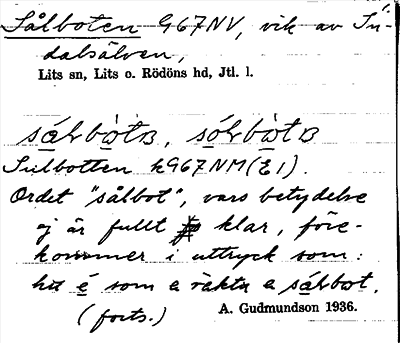 Sålboten 967NV, vik av In-
dalsälven,
Lits sn, Lits o. Rödöns hd, Jtl. l.
sálbòtʙ, sólbòtʙ
Sulbotten k967NM(E1).
Ordet "sålbot", vars betydelse
ej är fullt klar, före-
kommer i uttryck som:
hit é som e räkta e sálbot.
(forts.)
A. Gudmundson 1936.